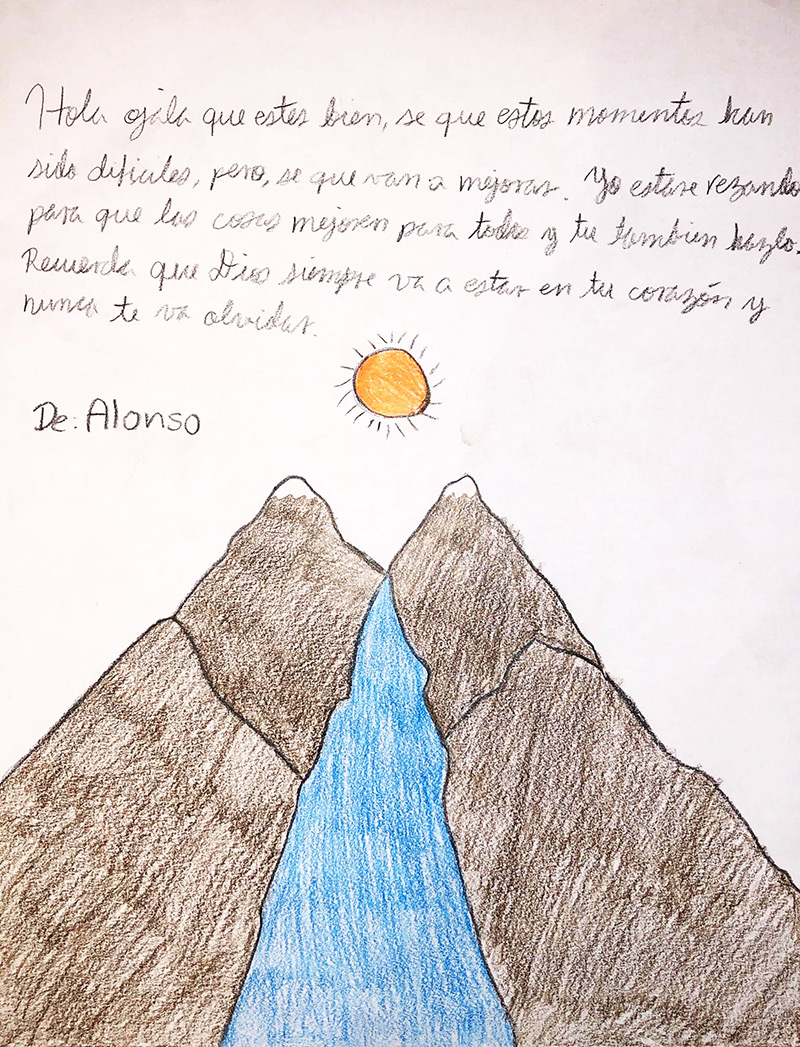 Hola ojála que estes bien, se que estos momentos han
sido dificiles, pero, se que van a mejorar. Yo estare rezando
para que las cosas mejoren para todos y tu tambien hazlo.
Recuerda que Dios siempre va a estar en tu corazón y
nunca te va olvidar.
De: Alonso